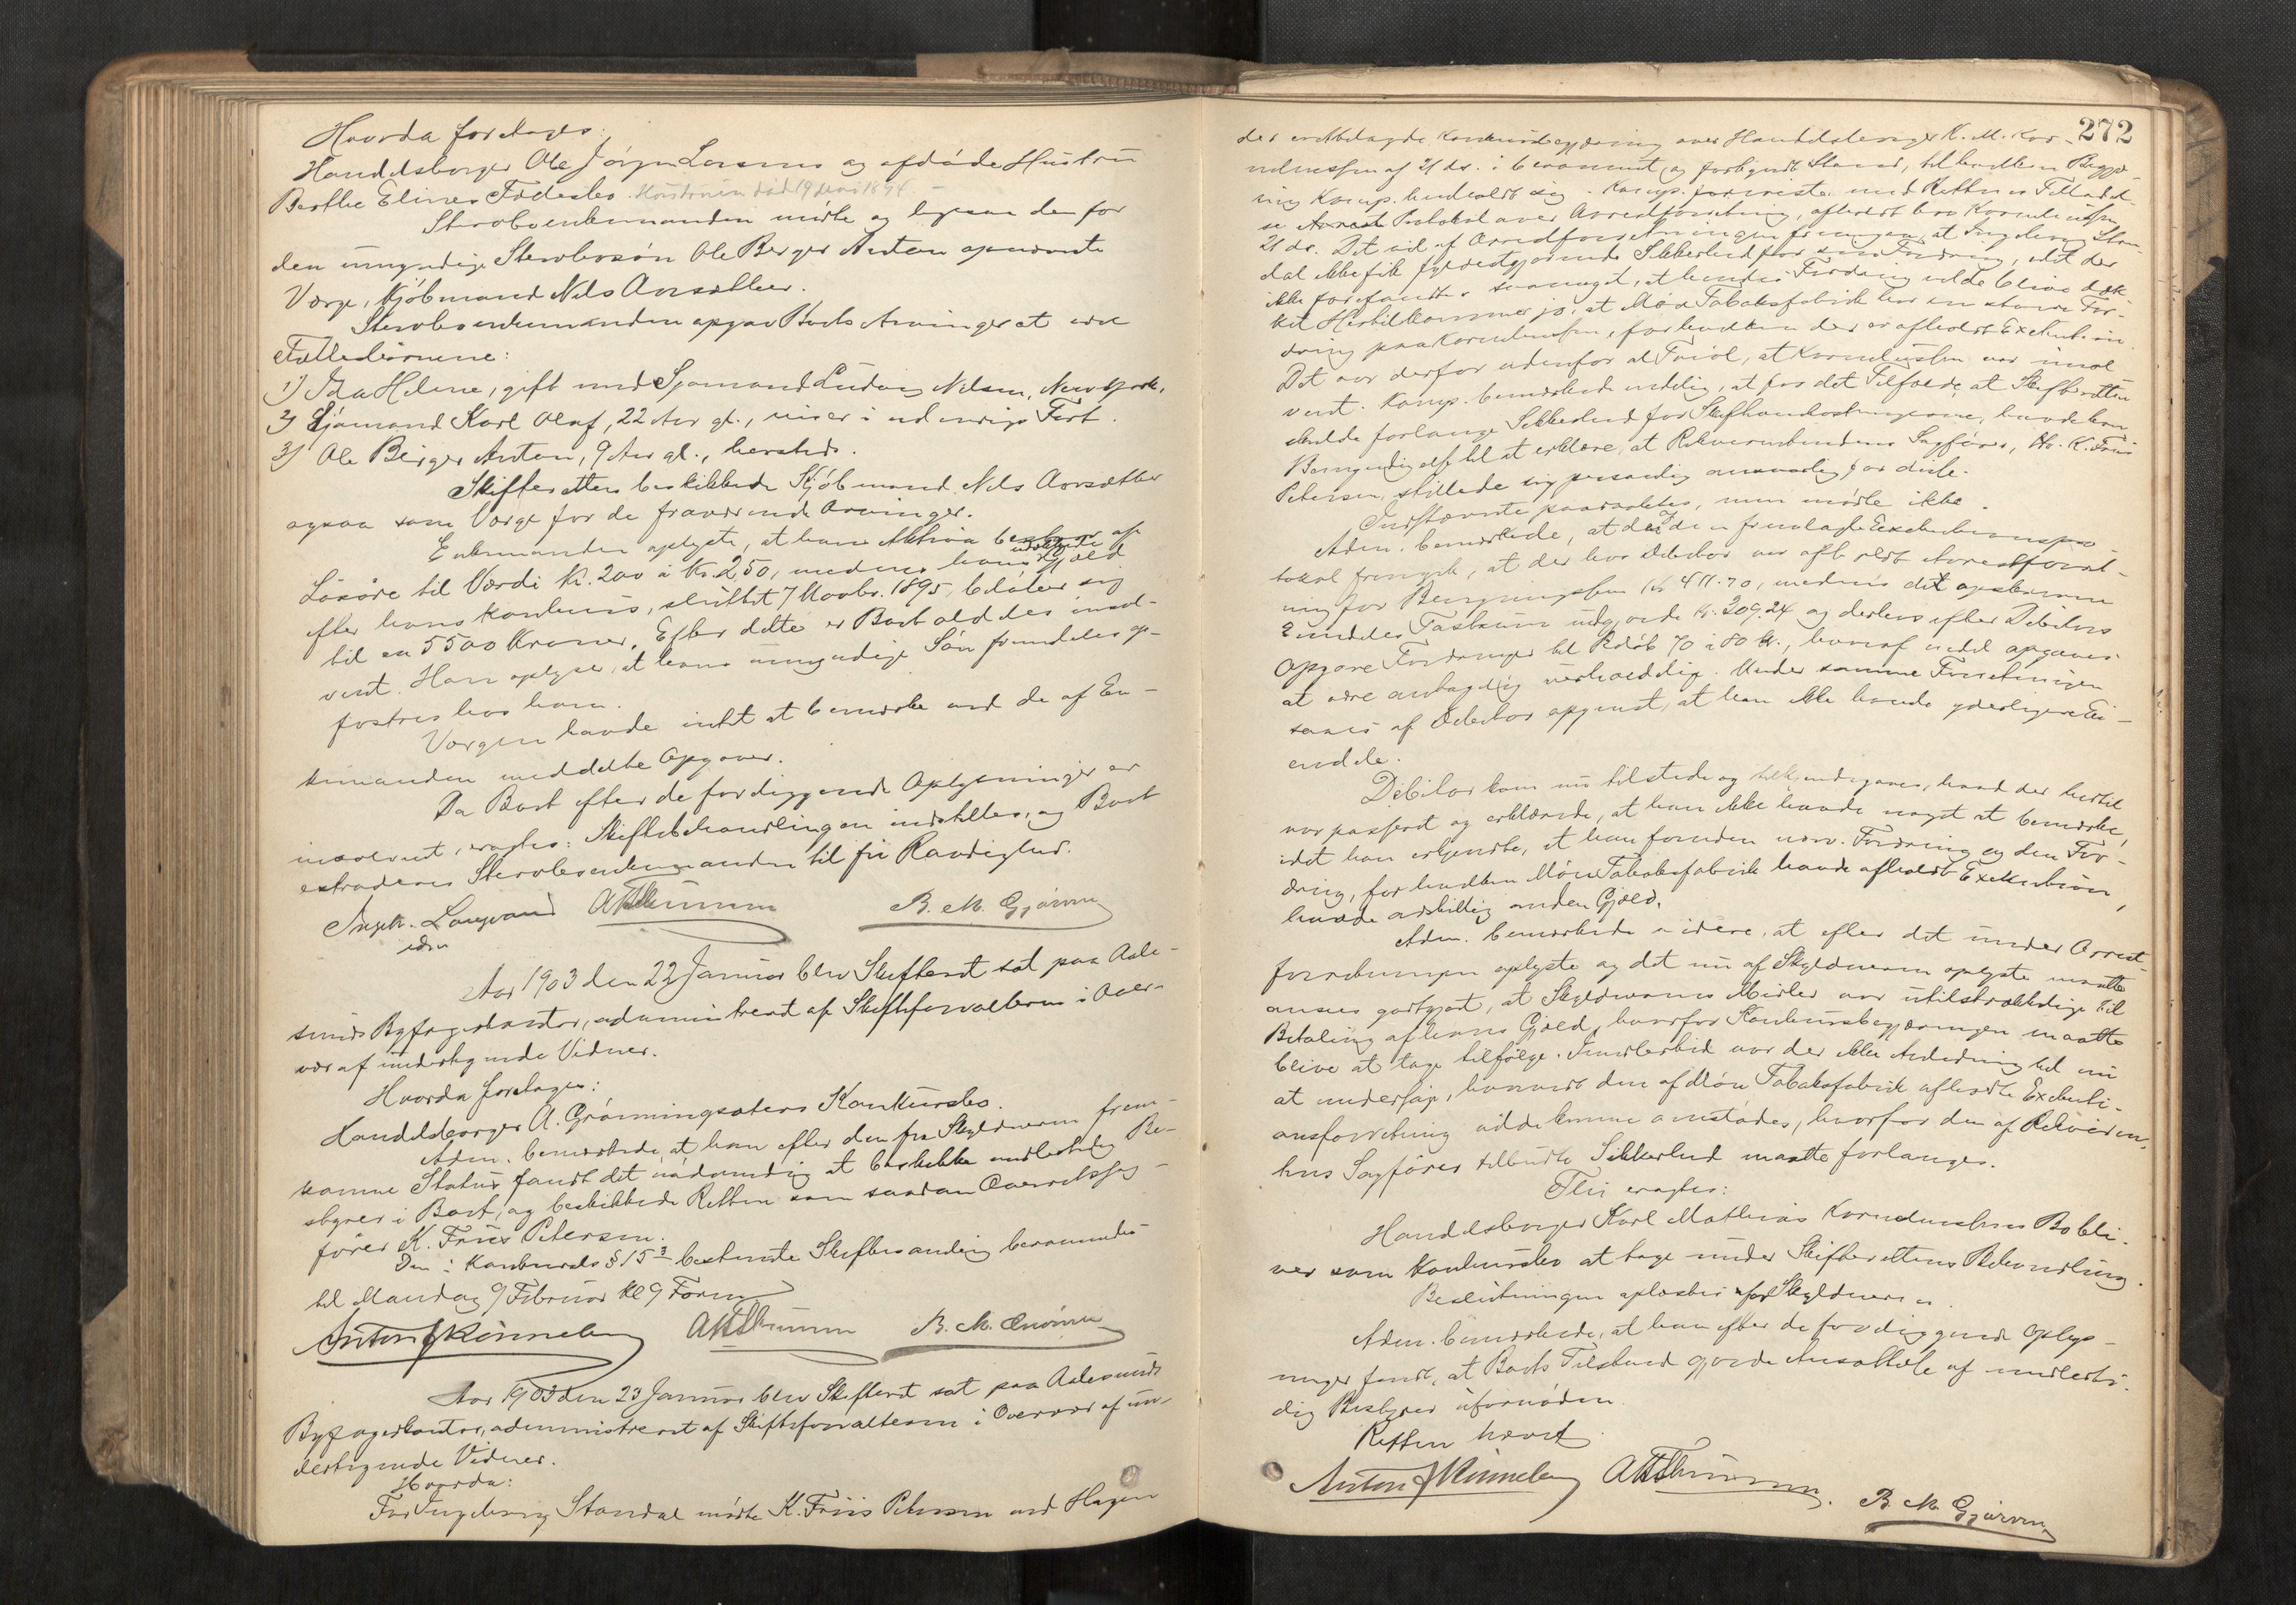 Hvorda foretages:
Handelsborger Ole Jörgen Larsens og afdöde Hustru
Berthe Elines Fællesbo. Hustruen död 19 1894.
Sterboenkemanden mödte og ligesaa den for
den umyndige Sterbosön Ole Berger Anton opnævnte
Værge, Kjöbmand Nils Aarsæther.
Sterboenkemanden opgav Boets Arvinger at være
Fællesbörnene:
1) Ida Helene, gift med Sjömand Ludvig Nilsen, New York.
2) Sjömand Karl Olaf, 22 Aar gl., reiser i udenrigs Fart.
3) Ole Birger Anton, 9 Aar gl., hersteds.
Skifteretten beskikkede Kjöbmand Nils Aarsæther
ogsaa som Værge for de fraværende Arvinger.
Enkemanden oplyste, at hans Aktiva bestaar af
Lösöre til Værdi Kr. 200 à Kr. 250, medens hans udækkede Gjæld
efter hans Konkurs, sluttet 7 Novbr. 1895, belöber sig
til ca 5500 Kroner. Efter dette er Boet aldeles insol-
vent. Han oplyser, at hans umyndige Sön fremdeles op-
fostres hos ham.
Værgen havde intet at bemærke ved de af En-
kemanden meddelte Opgaver.
Da Boet efter de foreliggende Oplysninger er
insolvent, eragtes: Skiftebehandlingen indstilles, og Boet
extraderes Sterboenkemanden til fri Raadighed.
Langvand
B. M. Gjørven
Aar 1903 den 22 Januar blev Skifteret sat paa Aale-
sunds Byfogedkontor, administreret af Skifteforvalteren i Over-
vær af undertegnede Vidner.
Hvorda foretages:
Handelsborger A. Grönningsæters Konkursbo.
Adm. bemærkede, at han efter den fra Skyldneren frem-
komne Status fandt det nödvendig at beskikke midlertidig Be-
styrer i Boet, og beskikkede Retten som saadan Overretssag-
förer K. Friis Petersen.
Den i Konkursls § 15³ bestemte Skiftesamling berammedes
til Mandag 9 Februar Kl 9 Form
Anton J Rønneberg
B. M. Gjørven
Aar 1903 den 23 Januar blev Skifteret sat paa Aalesunds
Byfogedkontor, administreret af Skifteforvalteren i Overvær af un-
dertegnede Vidner.
Hvorda:
For Ingeborg Standal mödte K. Friis Petersen ved Hagen
272
der fremlagde Konkursbegjæring over Handelsborger K. M. Kor-
neliussen af 21 ds. i berammet og forkyndt Stand, til hvilken Begjæ-
ring Komp. henholdt sig. Komp. foreviste med Rettens Tilladel-
se Protokol over Arrestforretning, afholdt hos Korneliussen
21 ds. Det vil af Arrestforretningen fremgaa, at Ingeborg Stan-
dal ikke fik fyldestgjörende Sikkerhed for sin Fordring, idet der
ikke forefandtes saameget, at hendes Fordring vilde blive dæk-
ket. Hertil kommer jo, at Möre Tobaksfabrik har en större For-
dring paa Korneliussen, for hvilken der er afholdt Exekution.
Det var derfor udenfor al Tvivl, at Korneliussen var insol-
vent. Komp. bemærkede endelig, at for det Tilfælde, at Skifteretten
skulde forlange Sikkerhed for Skifteomkostningerne, havde han
Bemyndigelse til at erklære, at Rekvirentindens Sagförer, Hr. K. Friis
Petersen, stillede sig personlig ansvarlig for disse.
Indstævnte paaraabtes, men mödte ikke.
Adm. bemærkede, at det af den fremlagte Exekutionspro-
tokol fremgik, at der hos Debitor var afholdt Arrestforret-
ning for Kr 411.70, medens det opskrevne
Eiendeles Taxtsum udgjorde Kr. 209.24 og derhos efter Debitors
Opgave Fordringer til Belöb 70 à 80 Kr., hvoraf endel opgaves
at være antagelig værdilös. Under samme Forretningen
saaes af Debitor opgivet, at han ikke havde yderligere Ei-
endele.
Debitor kom nu tilstede og tilkjendegaves, hvad der hidtil
var passeret og erklærede, at han ikke havde noget at bemærke,
idet han erkjendte, at han foruden nævn. Fordring og den For-
dring, for hvilken Möre Tobaksfabrik havde afholdt Exekution,
havde adskillig anden Gjæld.
Adm. bemærkede videre, at efter det under Arrest-
forretningen oplyste og det nu af Skyldneren oplyste maatte
ansees godtgjort, at Skyldnerens Midler var utilstrækkelige til
Betaling af hans Gjæld, hvorfor Konkursbegjæringen maatte
blive at tage tilfölge. Imidlertid var der ikke Anledning til nu
at undersöge, hvorvidt den af Möre Tobaksfabrik afholdte Exekuti-
onsforretning vilde kunne omstödes, hvorfor den af Rekvirentin-
dens Sagförer tilbudte Sikkerhed maatte forlanges.
Thi eragtes:
Handelsborger Karl Mathias Korneliussens Bo bli-
ver som Konkursbo at tage under Skifterettens Behandling.
Beslutningen oplæstes for Skyldneren.
Adm. bemærkede, at han efter de foreliggende Oplys-
ninger fandt, at Boets Tilstand gjorde Ansættelse af midlerti-
dig Bestyrer uforoden.
Retten hævet.
Anton J Rønneberg
B. M. Gjørven